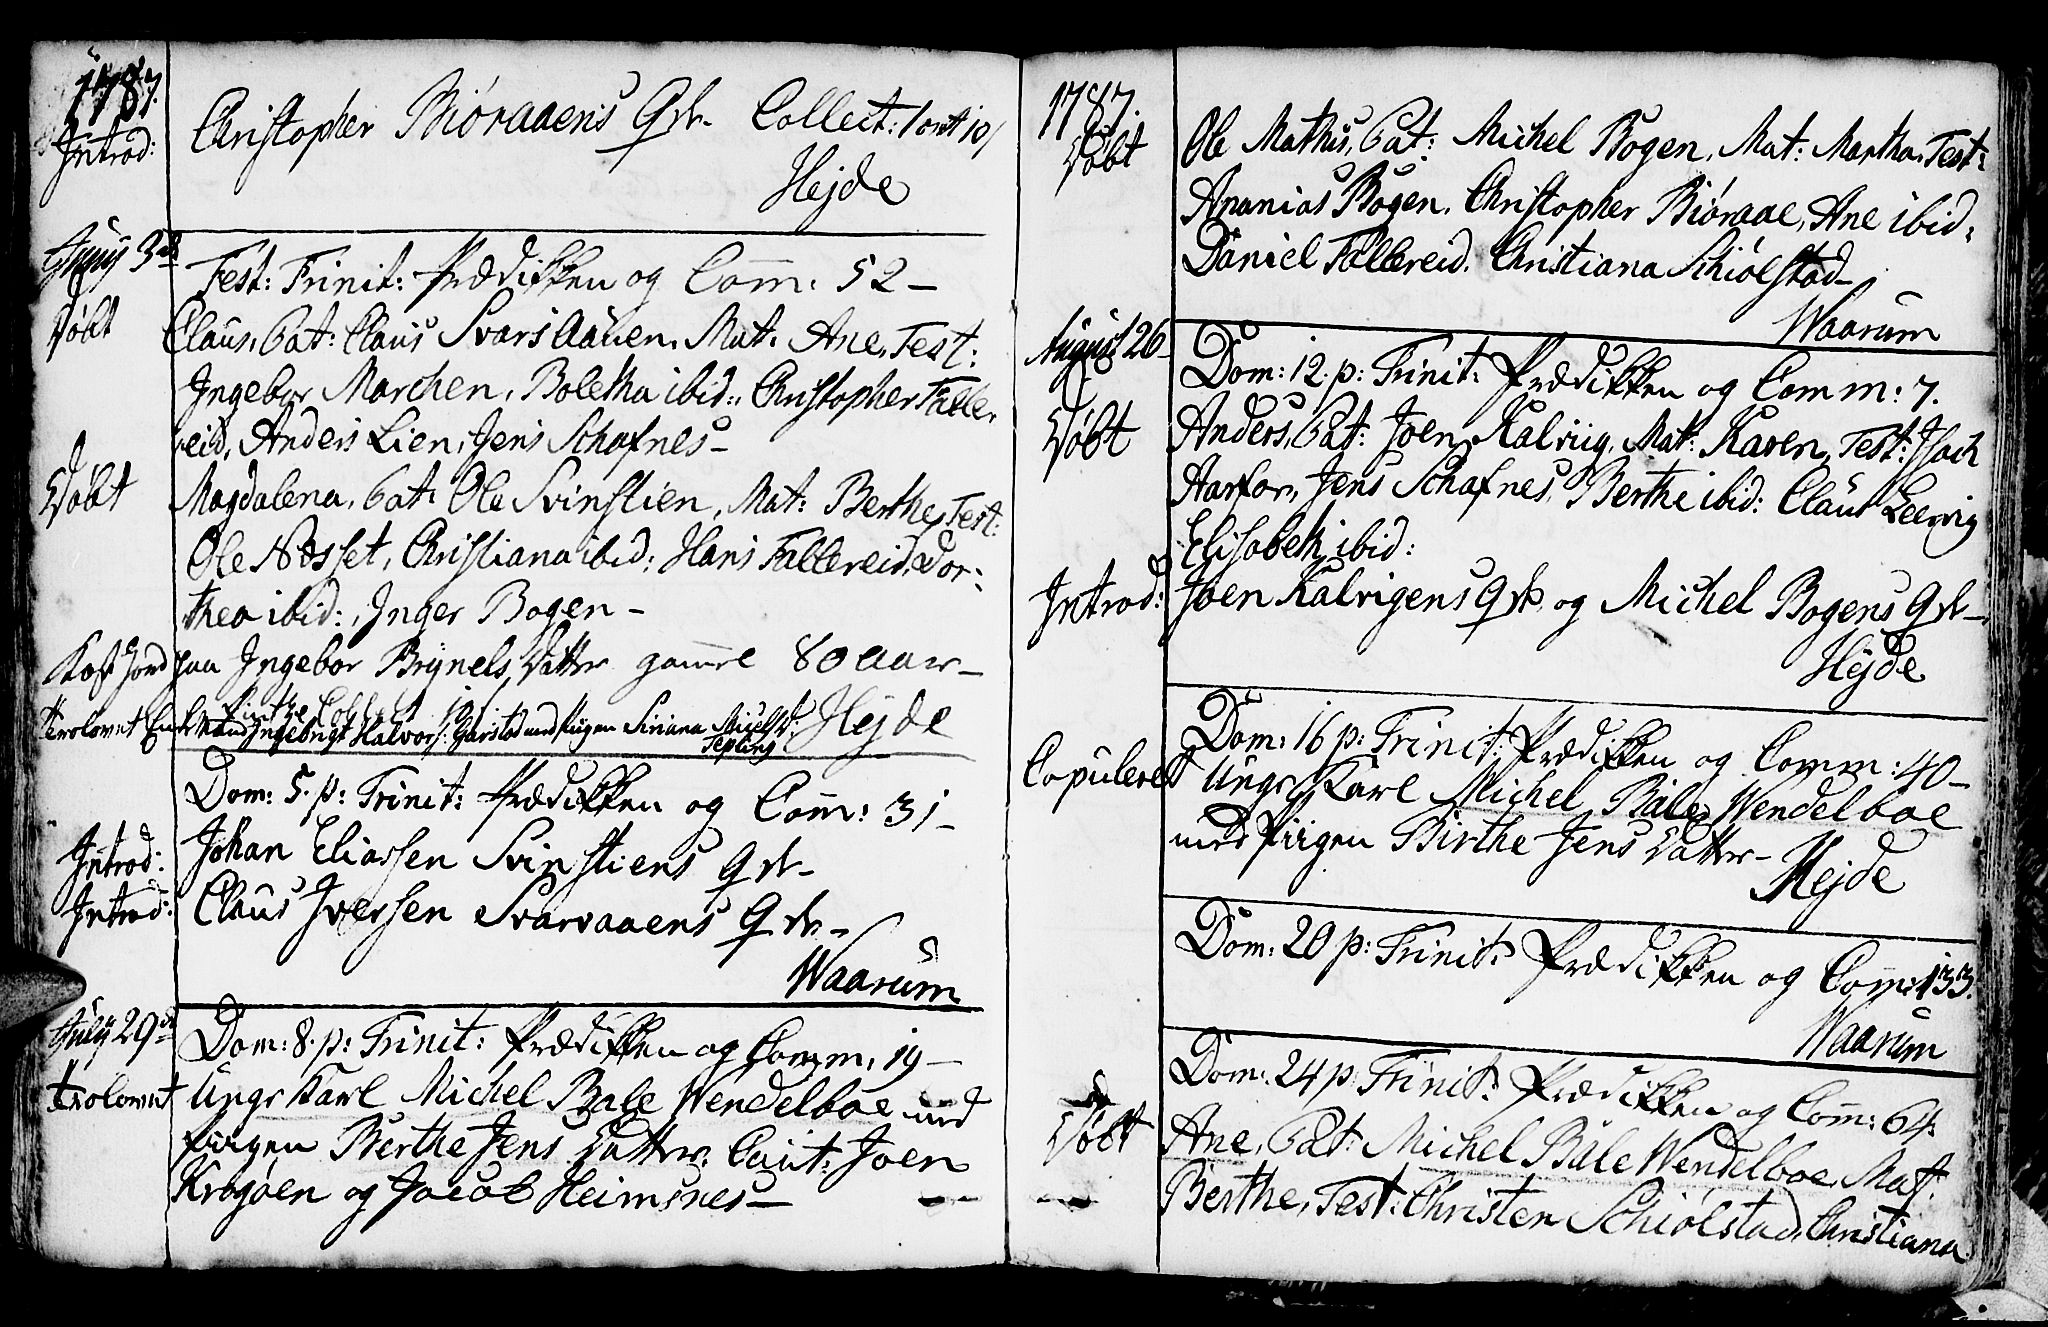 1787.
Introd: Christopher Biöraaens Qde Collect: 1 ort 10/
Hejde
Juny 3de Fest: Trinit: Prædikken og Com̅: 52-
Döbt Claus, Pat: Claus Svarsaauen, Mat: Ane, Test:
Ingebor Marchen, Boletha ibid:, Christopher Falle-
reid, Anders Lien, Jens Schafnes-
Döbt Magdalena, Pat: Ole Svinstien, Mat: Berthe, Test:
Ole Nösset, Christiana ibid: Hans Fallereid, Dor-
thea ibid:, Inger Bogen-
Kast Jord paa Ingebor Brynels Datter gamel 80 aar-
Trolovet Ingebrigt Halvors: Garstad med Pigen Siriana Michelsd: Hejde
Tepling
Dom: 5. p: Trinit: Prædikken og Com̅: 31-
Introd: Johan Eliassen Svinstiens Qde-
Introd: Claus Iversen Svarvaaens Qde-
Waarum
July 29de Dom: 8. p: Trinit: Prædikken og Comm: 19-
Trolovet Ungr Karl Michel Bale Wendelboe med
Pigen Berthe Jens Datter. Caut: Joen
Krogöen og Jacob Heimsnes-
1787.
Döbt Ole Mathis, Pat: Michel Bogen, Mat: Martha, Test:
Ananias Bogen, Christopher Biöraae, Ane ibid:
Daniel Fallereid, Christiana Schiölstad-
Waarum
August 26- Dom: 12. p: Trinit: Prædikken og Comm: 7.
Döbt Anders, Pat: Joen Kalviig, Mat: Karen, Test: Isach
Aarfor, Jens Schafnes, Berthe ibid: Claus Leervig
Elisabeth ibid:
Introd: Joen Kalvigens Qde og Michel Bogens Qde-
Hejde
Dom: 16 p: Trinit: Prædikken og Comm: 40-
Copuleret Ungr Karl Michel Bale Wendelboe
med Piigen Birthe Jens Datter-
Hejde
Dom: 20 p: Trinit: Prædikken og Com̅: 133.
Waarum
Dom: 24 p Trinit: Prædikken og Com̅: 64.
Döbt Ane, Pat: Michel Bale Wendelboe, Mat:
Berthe, Test: Christen Schiölstad, Christiana